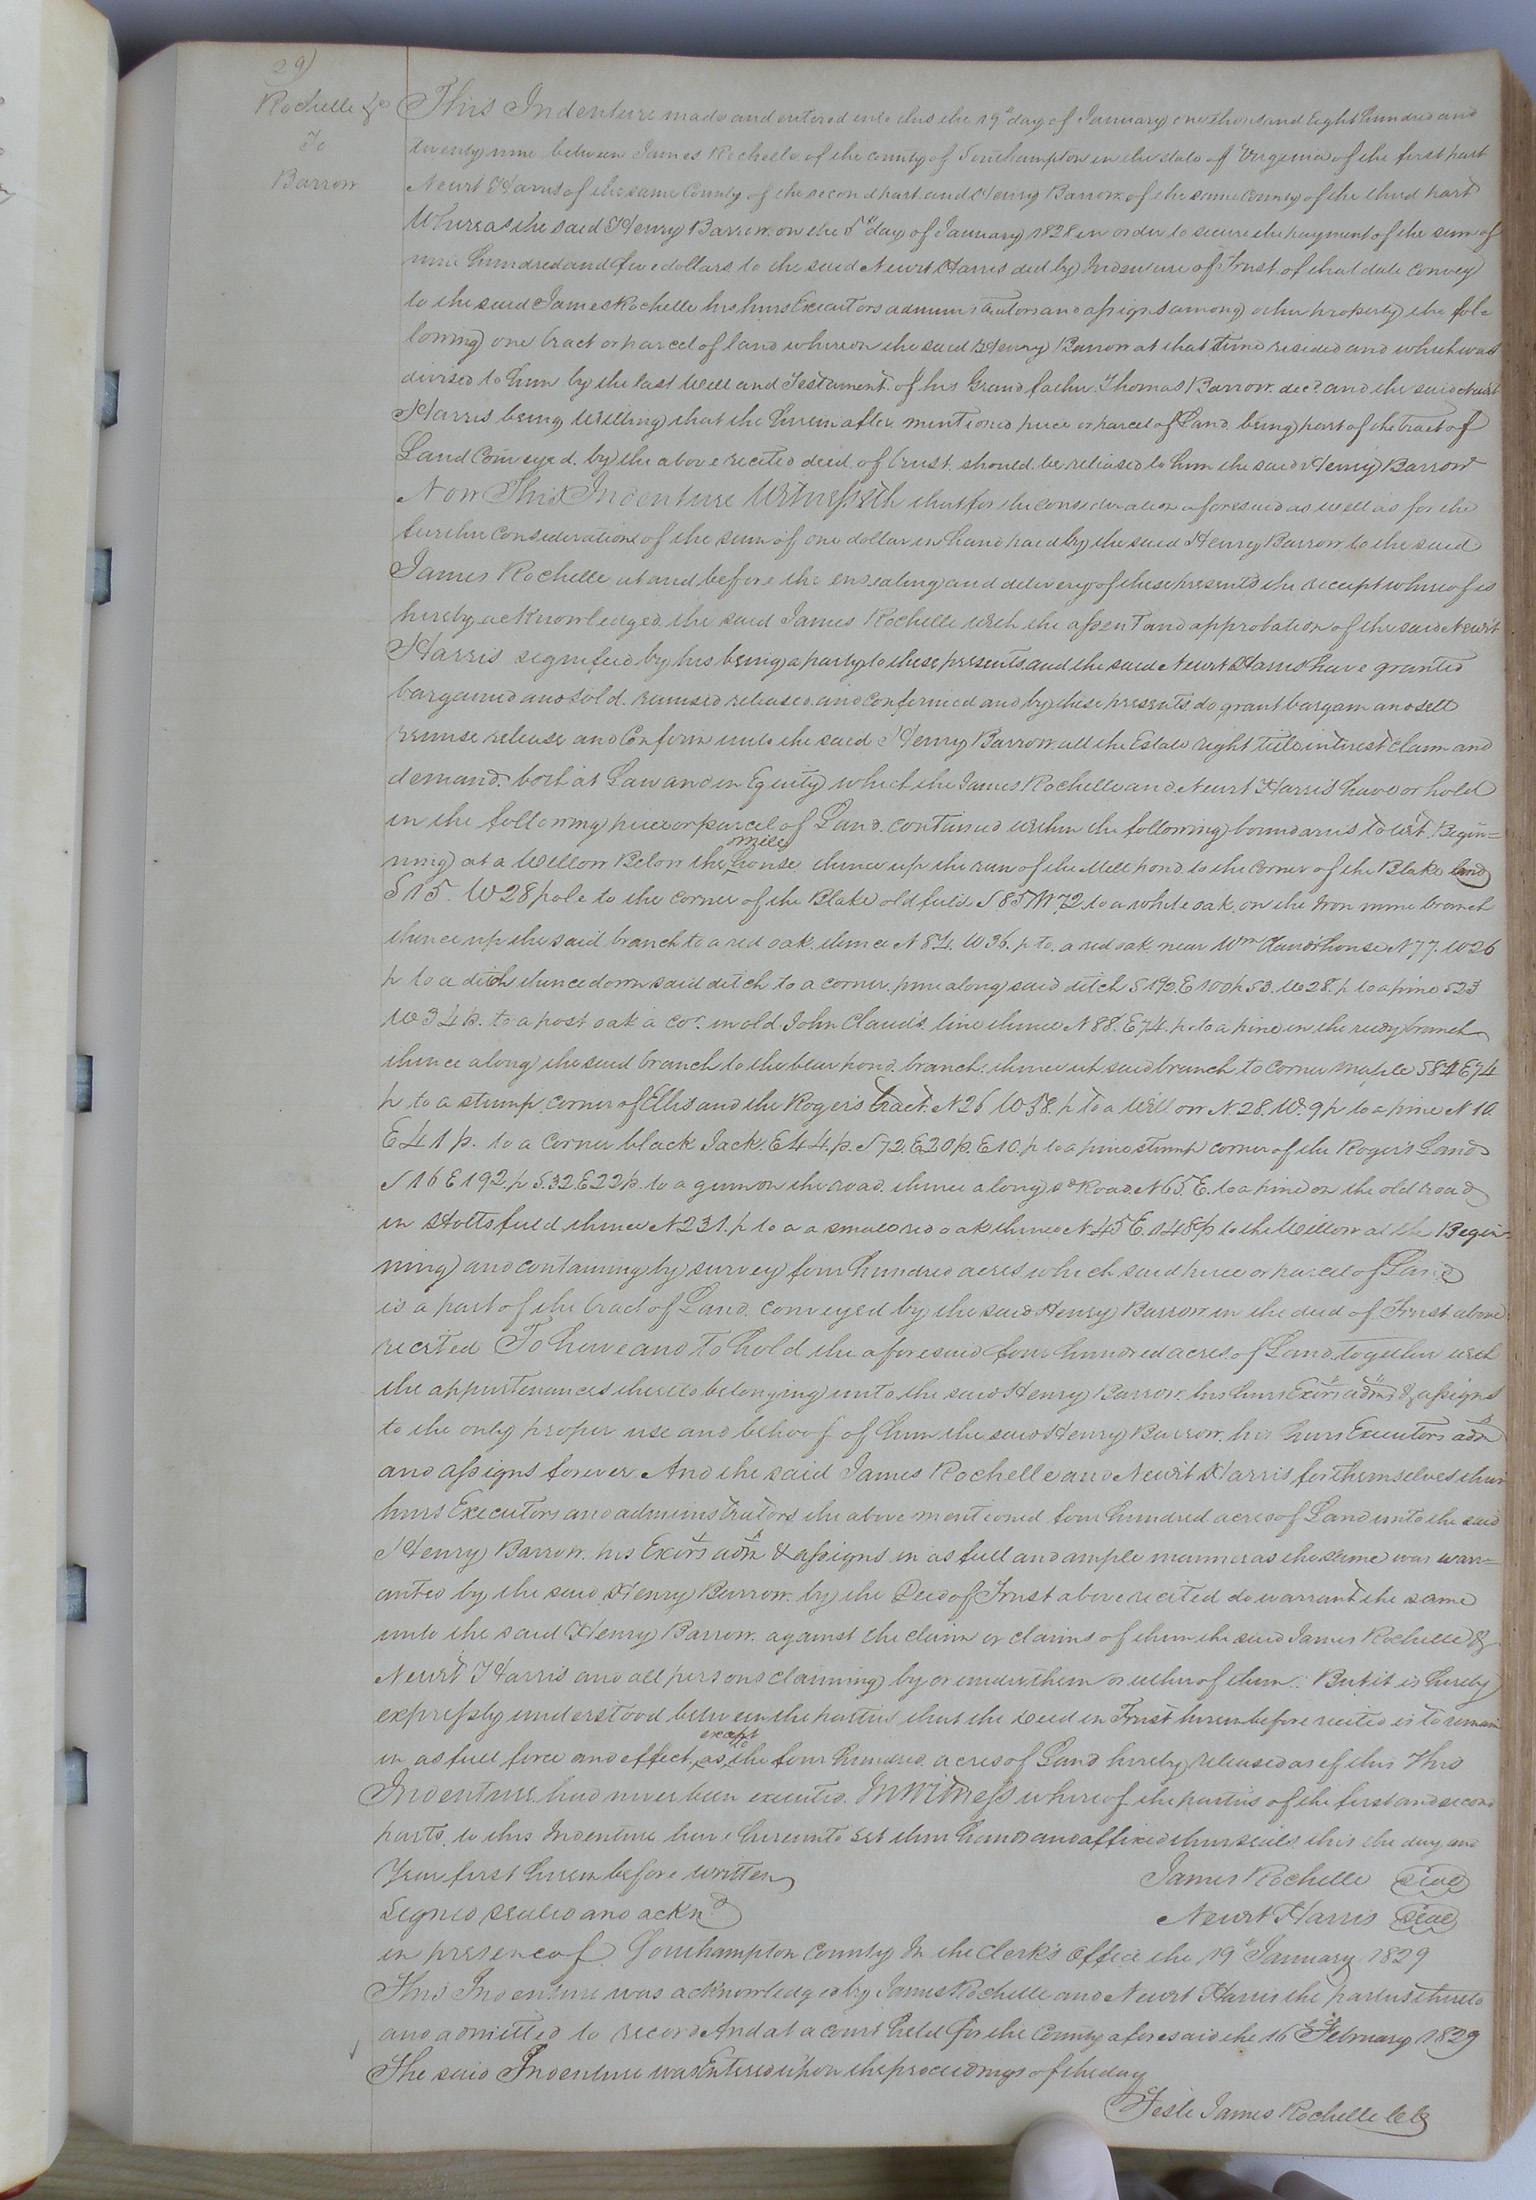 29)
Rochelle &c
To
Barrow
This Indenture made and entered into this the 19th day of January one thousand Eight hundred and
twenty nine between James Rochelle of the county of Southampton in the state of Virginia of the first part
Newit Harris of the same County of the second part and Henry Barrow of the same County of the third part
Whereas the said Henry Barrow on the 5th day of January 1828 in order to secure the payment of the sum of
nine hundred and five dollars to the said Newit Harris did by Indenture of Trust of that date convey
to the said James Rochelle his heirs Executors administrators and assigns among other property the fol=
lowing one tract or parcel of land whereon the said Henry Barrow at that time resided and which was
devised to him by the last Will and Testament of his Grand father Thomas Barrow decd. and the said Newit
Harris being willing that the herein after mentioned piece or parcel of Land being part of the tract of
Land Conveyed by the above recited deed of trust should be released to him the said Henry Barrow
Now This Indenture Witnesseth that for the consideration aforesaid as well as for the
further consideration of the sum of one dollar in hand paid by the said Henry Barrow to the said
James Rochelle at and before the ensealing and delivery of these presents the receipt whereof is
hereby acknowledged the said James Rochelle with the assent and approbation of the said Newit
Harris signified by his being a party to these presents and the said Newit Harris have granted
bargained and sold remised released and confirmed and by these presents do grant bargain and sell
remise release and Confirm unto the said Henry Barrow all the Estate right title interest claim and
demand both at Law and in Equity which the James Rochelle and Newit Harris have or hold
in the following piece or parcel of Land contained within the following boundaries to wit Begin=
ning at a Willow Below the mill house thence up the run of the Mill pond to the corner of the Blake land
S 15. W 28 pole to the corner of the Blake old field S 85 W 72 to a white oak on the Iron mine branch
thence up the said branch to a red oak thence N 84. W 36. p to a red oak near Wm Clauds house N 77. W 26
p to a ditch thence down said ditch to a corner pine along said ditch S 19 1/2. E 100 p S 3. W 28. p to a pine S 23
W 34 p. to a post oak a cor. in old John Claud's line thence N 88. E 74. p. to a pine in the reedy branch
thence along the said branch to the bear pond branch. thence up said branch to corner maple S 84 E 74
p to a stump corner of Ellis and the Rogers tract N 26 W 58. p to a Willow N. 28. W. 9 p to a pine N 10
E 41 p. to a corner black Jack. E 44. p. S 72. E 20 p. E 10. p to a pine stump corner of the Rogers Land
S 16 E 192. p S. 32. E 22 p. to a gum on the road. thence along sd Road. N 65. E. to a pine on the old road
in Stotts field thence N 23 1. p to a a small red oak thence N. 45 E. 148 p to the Willow at the Begin=
ning and containing by survey four hundred acres which said piece or parcel of Land
is a part of the tract of Land conveyed by the said Henry Barrow in the deed of Trust above
recited To have and to hold the aforesaid four hundred acres of Land together with
the appurtenances thereto belonging unto the said Henry Barrow his heirs Exors adms & assigns
to the only proper use and behoof of him the said Henry Barrow his heirs Executors adm
and assigns forever And the said James Rochelle and Newit Harris for themselves their
heirs Executors and administrators the above mentioned four hundred acres of Land unto the said
Henry Barrow his Exors adm & assigns in as full and ample manner as the same was warr=
anted by the said Henry Barrow by the Deed of Trust above recited do warrant the same
unto the said Henry Barrow against the claim or claims of them the said James Rochelle &
Newit Harris and all persons claiming by or under them or either of them. But it is hereby
expressly understood between the parties that the deed in Trust herein before recited is to remain
in as full force and effect, except as to the four hundred acres of Land hereby released as if this This
Indenture had never been executed. In Witness whereof the parties of the first and second
parts to this Indenture have hereunto set their hands and affixed their seals this the day and
Year first herein before written
James Rochelle Seal
Signed sealed and acknd
Newit Harris Seal
in presence of Southampton County In the Clerk's Office the 19th January 1829
This Indenture was acknowledged by James Rochelle and Newit Harris the parties thereto
and admitted to record And at a court held for the County aforesaid the 16th February 1829
The said Indenture was Entered upon the proceedings of the day
Teste James Rochelle Clk